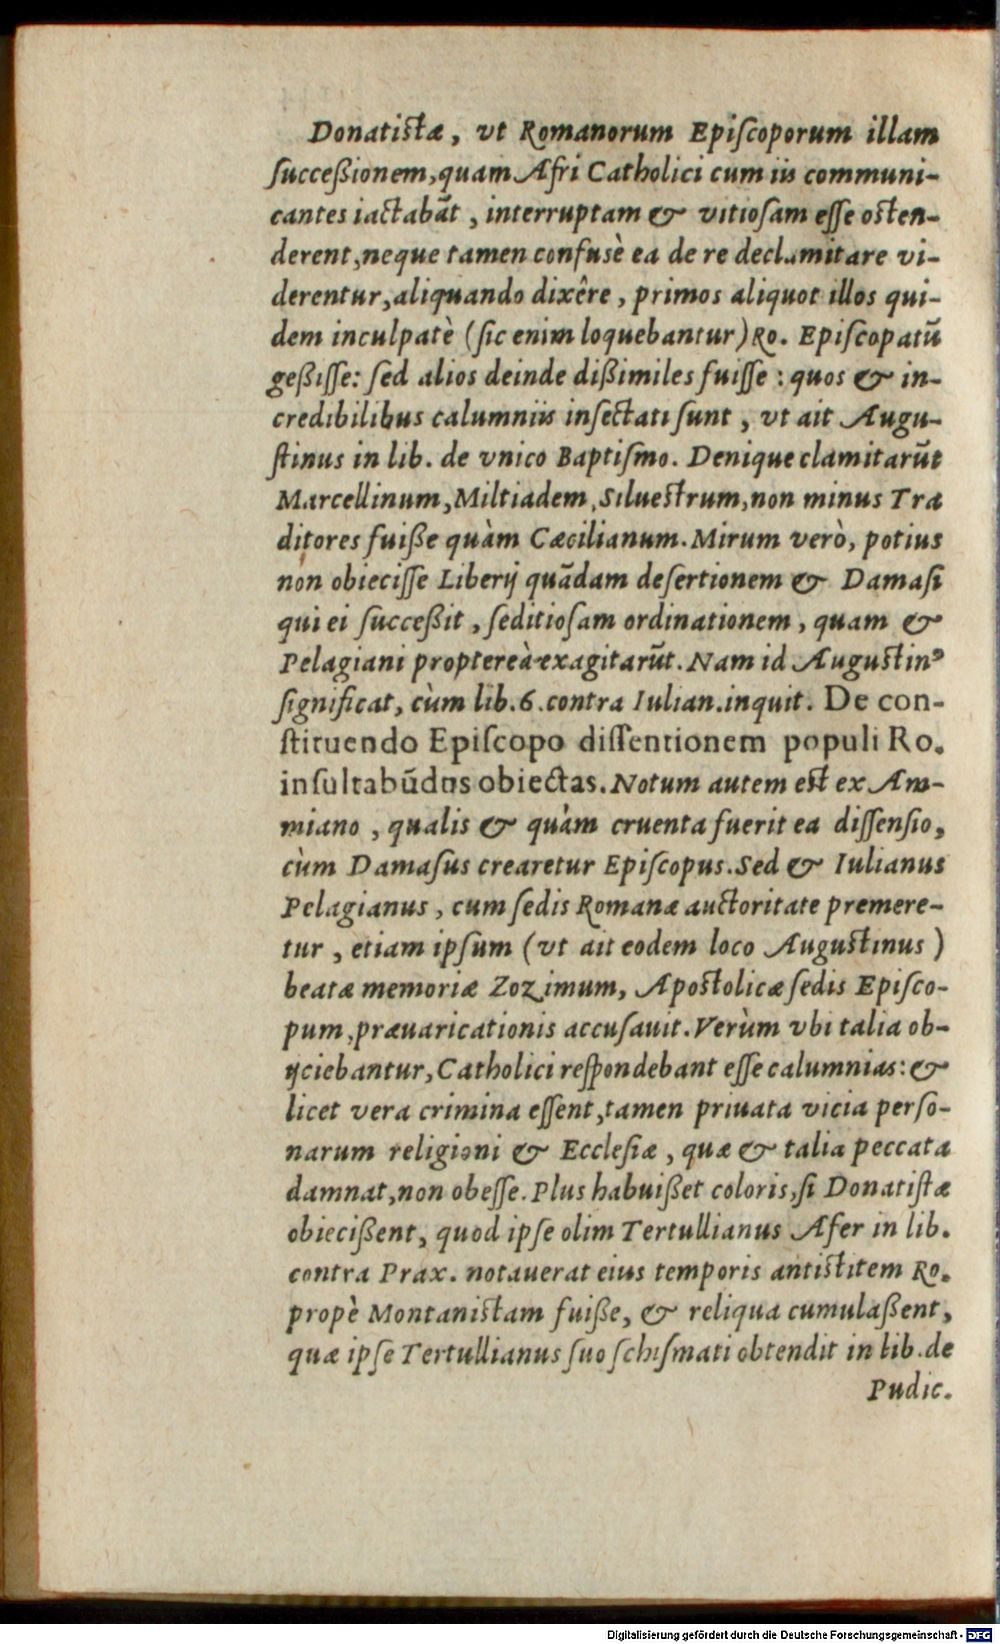 Donatistæ, vt Romanorum Epiſcoporum illam
ſucceßionem, quam Afri Catholici cum iis communi-
cantes iactabāt, interruptam & vitioſam eſſe osten-
derent, neque tamen confusè ea de re declamitare vi-
derentur, aliquando dixêre, primos aliquot illos qui-
dem inculpatè (ſic enim loquebantur) Ro. Epiſcopatū
geßiſſe: ſed alios deinde dißimiles fuiſſe: quos & in-
credibilibus calumniis inſectati ſunt, vt ait Augu-
ſtinus in lib. de vnico Baptiſmo. Denique clamitarūt
Marcellinum, Miltiadem, Siluestrum, non minus Tra
ditores fuiße quàm Cæcilianum. Mirum verò, potius
non obieciſſe Liberij quādam deſertionem & Damaſi
qui ei ſucceßit, ſeditioſam ordinationem, quam &
Pelagiani proptereà exagitarūt. Nam id Augustinꝰ
ſignificat, cùm lib. 6. contra Iulian. inquit. De con-
ſtituendo Epiſcopo diſſentionem populi Ro.
inſultabūdus obiectas. Notum autem est ex Am-
miano, qualis & quàm cruenta fuerit ea diſſenſio,
cùm Damaſus crearetur Epiſcopus. Sed & Iulianus
Pelagianus, cum ſedis Romanæ auctoritate premere-
tur, etiam ipſum (vt ait eodem loco Augustinus)
beatæ memoriæ Zozimum, Apostolicæ ſedis Epiſco-
pum, præuaricationis accuſauit. Verùm vbi talia ob-
ijciebantur, Catholici reſpondebant eſſe calumnias: &
licet vera crimina eſſent, tamen priuata vicia perſo-
narum religioni & Eccleſiæ, quæ & talia peccata
damnat, non obeſſe. Plus habuißet coloris, ſi Donatiſtæ
obiecißent, quod ipſe olim Tertullianus Afer in lib.
contra Prax. notauerat eius temporis antistitem Ro.
propè Montanistam fuiße, & reliqua cumulaßent,
quæ ipſe Tertullianus ſuo ſchiſmati obtendit in lib. de
Pudic.
Digitalisierung gefördert durch die Deutsche Forschungsgemeinschaft - DFG